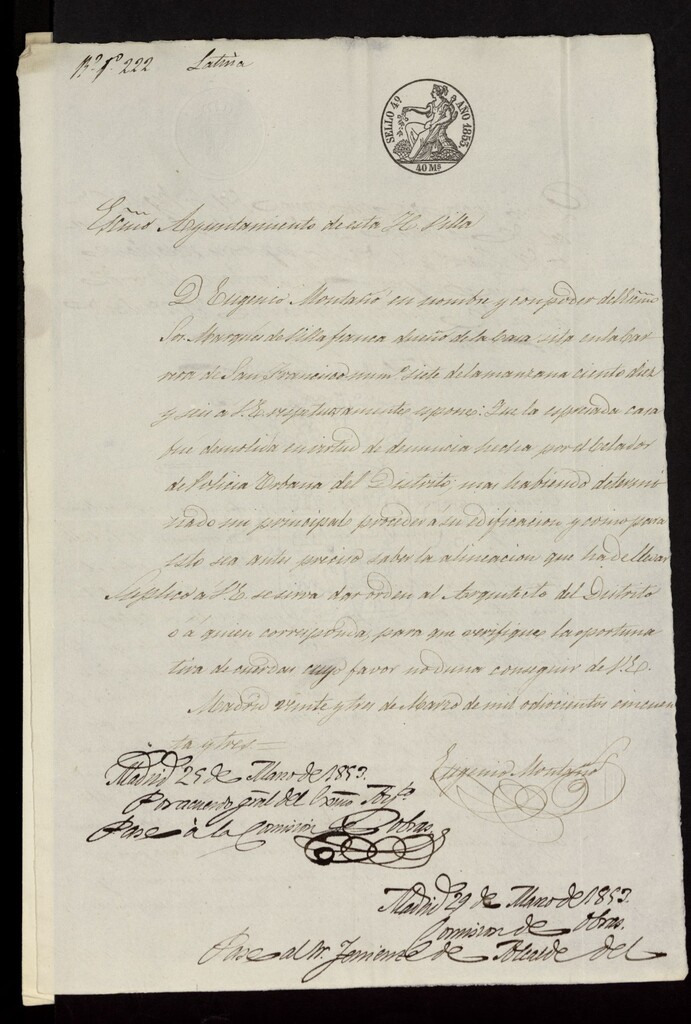 Rº gº 222 Latina
SELLO 4º AÑO 1853.
40 Ms
Exmo Ayuntamiento de esta H. Villa
D. Eugenio Montaño en nombre y con poder del Exmo
Sor. Marques de Villafranca dueño de la Casa sita en la Car
rera de San Francisco num.º siete de la manzana ciento diez
y seis a V.E. respetuosamente espone: Que la espresada casa
fue demolida en virtud de denuncia hecha por el Celador
de Policia Urbana del Distrito; mas habiendo determi
nado mi principal proceder á su edificacion y como para
esto sea antes preciso saber la alineacion que ha de llevar
Suplico á V.E. se sirva dar orden al Arquitecto del Distrito
ó á quien corresponda, para que verifique la oportuna
tira de cuerdas cuyo favor no duda conseguir de V.E.
Madrid veinte y tres de Marzo de mil ochocientos cincuen
ta y tres=
Eugenio Montaño
Madrid 25 de Marzo de 1853.
Por acuerdo gral del Exmo Ayto
Pase á la Comision de Obras
Madrid 29 de Marzo de 1853.
Comision de Obras.
Pase al Sr. Teniente de Alcalde del